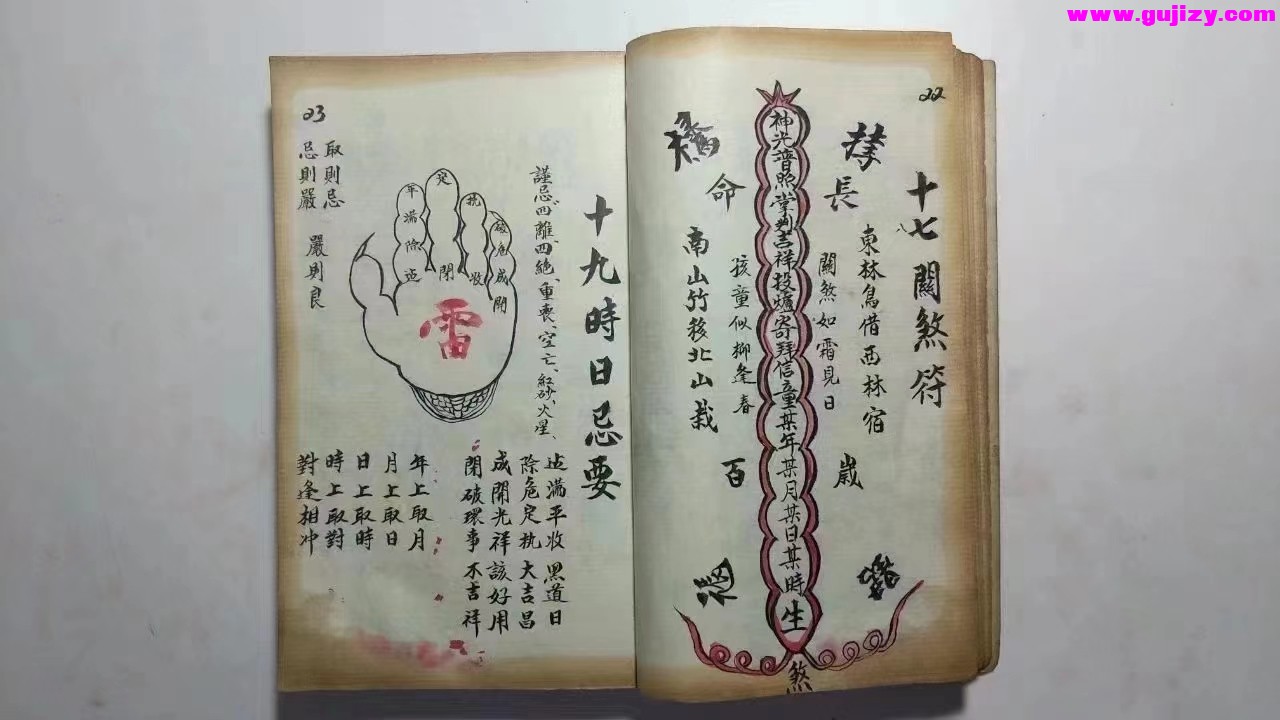 www.gujizy.com
22
十七關煞符
八
長
歲
東林鳥借西林宿
關煞如霜見日
神光普照掌判吉祥投爐寄拜信童某年某月某日某時生
煞
孩童似柳逢春
命
百
南山竹移北山栽
十九時日忌要
謹忌四離、四絶、重喪、空亡、紅砂、火星、
建滿平收黑道日
除危定执大吉昌
成開光祥該好用
閉破環事不吉祥
年滿除建
定
閉
执
收
破危成開
雷
年上取月
月上取日
日上取時
時上取對
對逢相冲
23
取則忌
忌則嚴
嚴則良